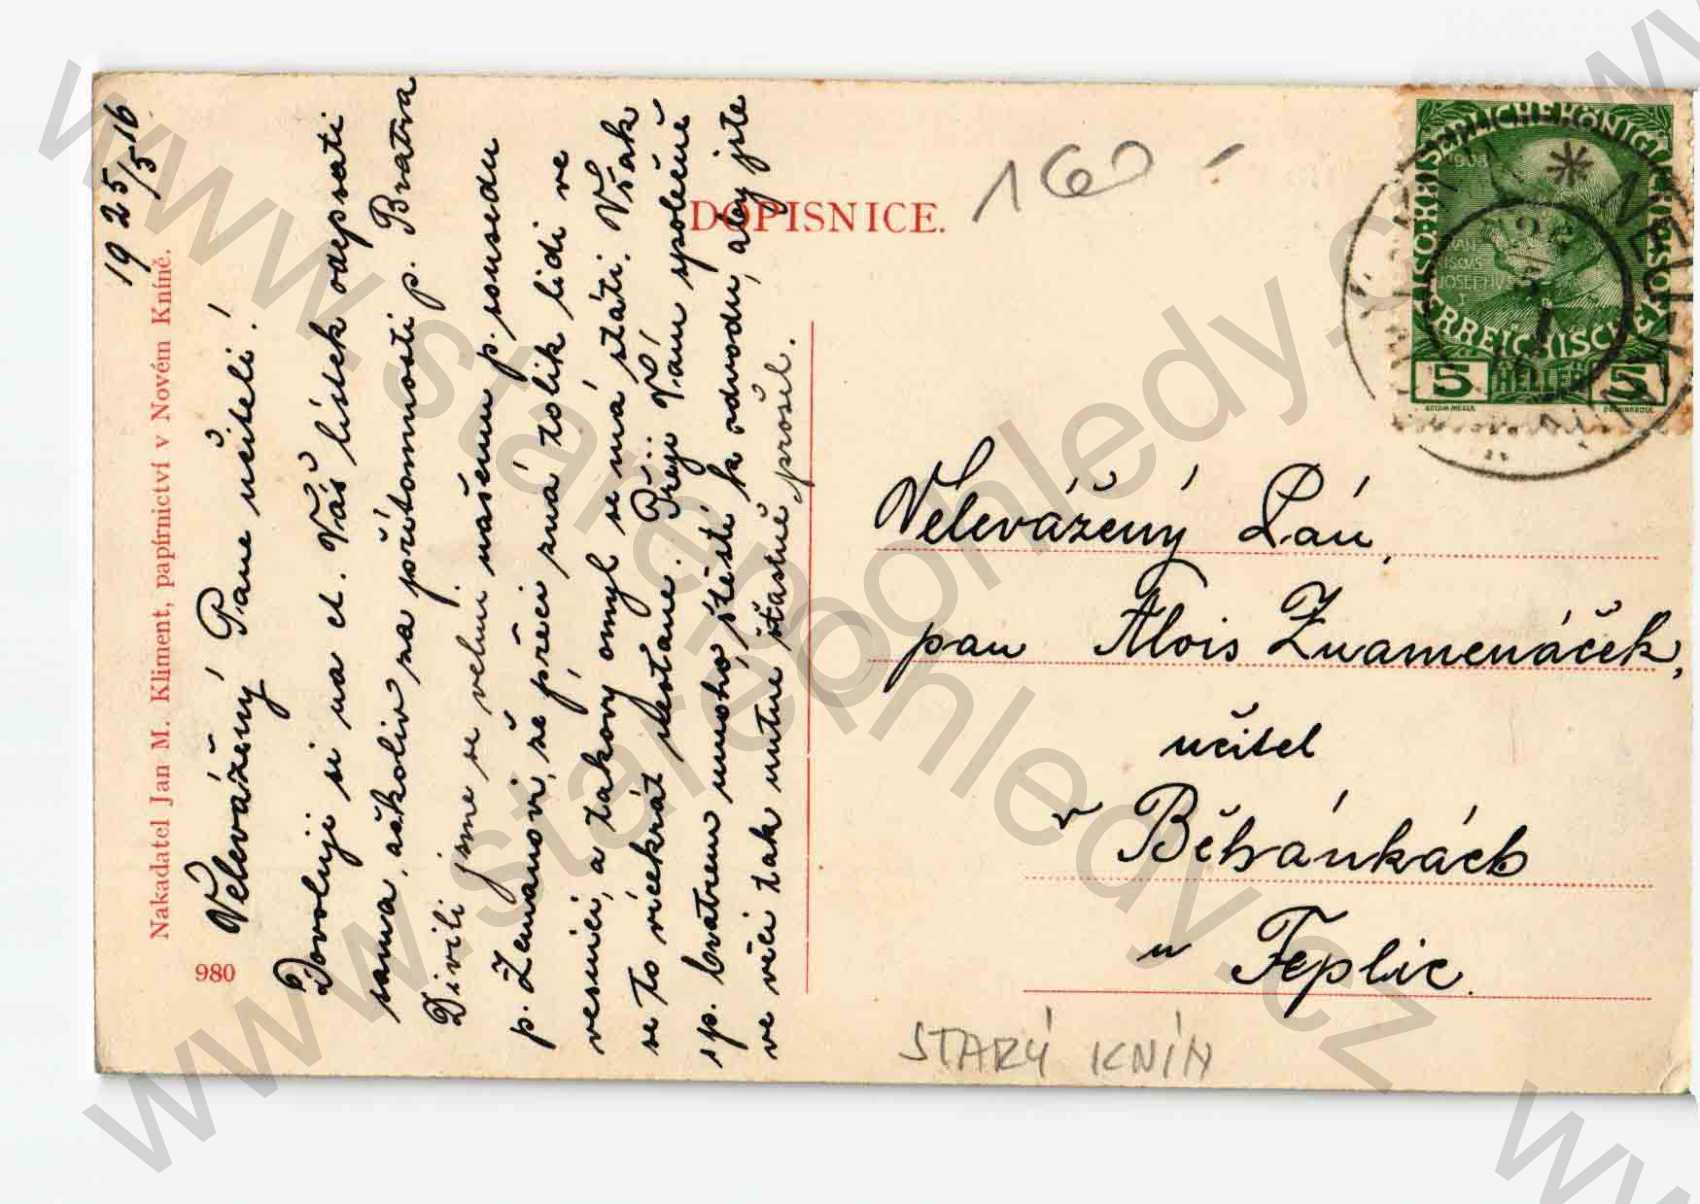 19 25/5 16
Nakadatel Jan M. Kliment, papírnictví v Novém Kníně.
980
Velevážený Pane učiteli!
Dovoluji si na ct. Váš lístek odepsati
sama, ačkoliv za přítomnosti p. Bratra
Divili jsme se velmi našemu p. sousedu
p. Zemanovi, že přeci zná tolik lidí ve
vesnici, a takový omyl se má státi. Však
se to vícekrát nestane. Přeji Vám společně
sp. bratrem mnoho štěstí k odvodu, aby jste
ve věci tak nutné šťastně prošel.
DOPISNICE.
160 -
KAISERLICHE KÖNIGLICHE
ÖSTERREICHISCHE POST
1908
5 HELLER 5
Velevážený Pán,
pan Alois Znamenáček,
učitel
v Běhánkách
u Teplic.
STARÝ KNÍN
www.starepohledy.cz
www.starepohledy.cz